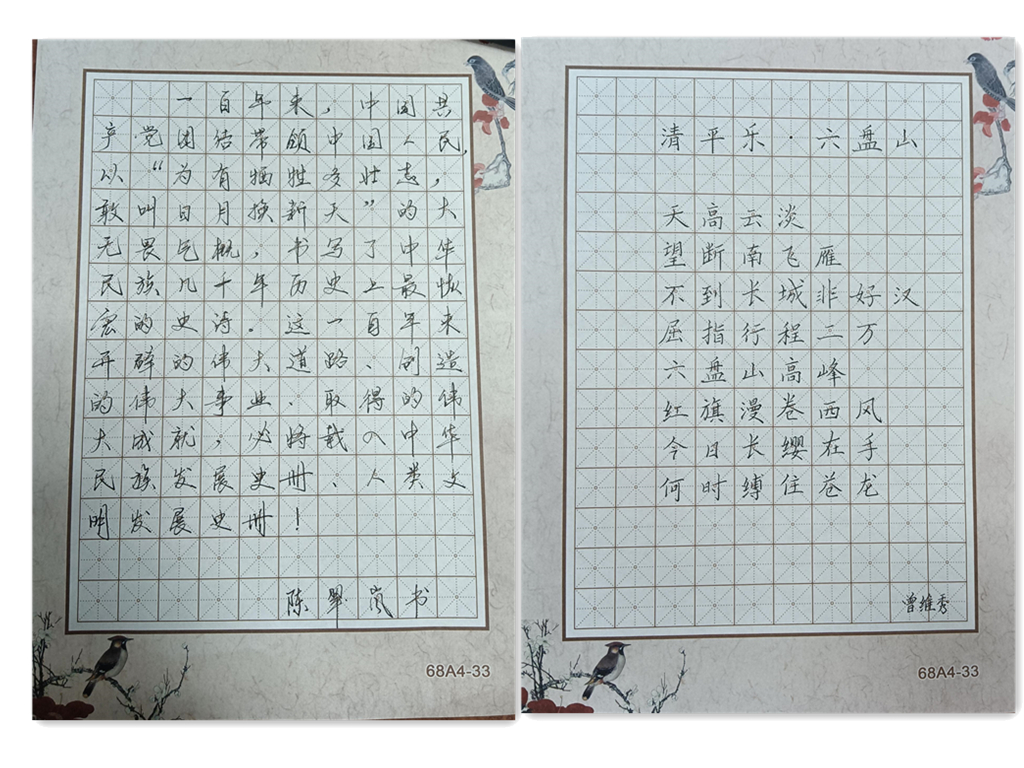 一百年来，中国共
产党团结带领中国人民，
以“为有牺牲多壮志，
敢叫日月换新天”的大
无畏气概，书写了中华
民族几千年历史上最恢
宏的史诗。这一百年来
开辟的伟大道路、创造
的伟大事业、取得的伟
大成就，必将载入中华
民族发展史册、人类文
明发展史册！
陈翠岚书
68A4-33
清平乐·六盘山
天高云淡
望断南飞雁
不到长城非好汉
屈指行程二万
六盘山高峰
红旗漫卷西风
今日长缨在手
何时缚住苍龙
曾维秀
68A4-33